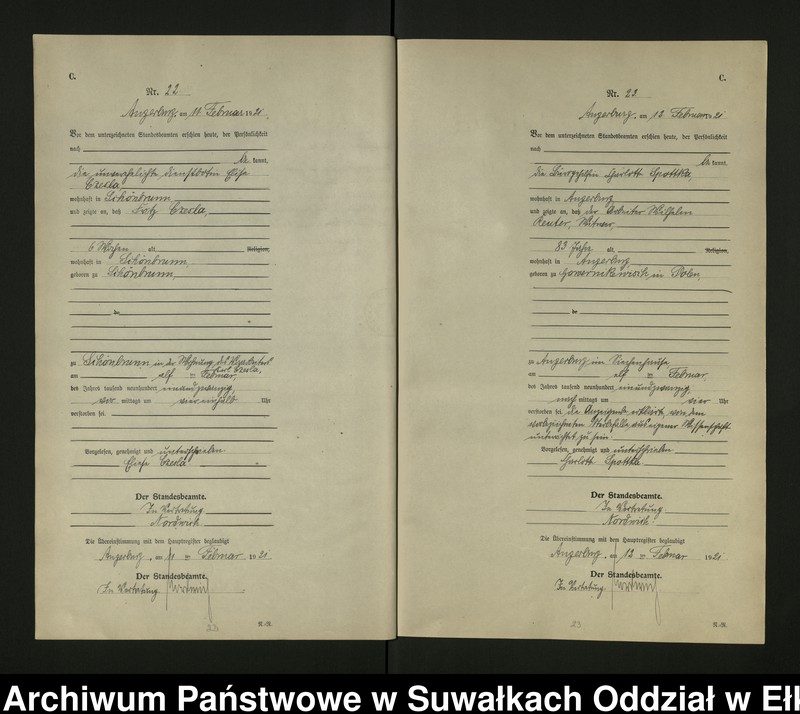 C.
Nr. 22
Angerburg, am 11 Februar 1921.
Vor dem unterzeichneten Standesbeamten erschien heute, der Persönlichkeit
nach
be kannt,
die unverehelichte Dienstboten Eliese
Czesla
wohnhaft in Schönbrunn,
und zeigte an, daß Fritz Czesla,
6 Wochen alt, Religion,
wohnhaft in Schönbrunn,
geboren zu Schönbrunn,
de
zu Schönbrunn in der Wohnung des
Czesla,
am elf ten Februar
des Jahres tausend neunhundert einundzwanzig
vor mittags um viereinhalb Uhr
verstorben sei.
Vorgelesen, genehmigt und unterschrieben
Eliese Czesla
Der Standesbeamte.
In Vertretung
Nordwich
Die Übereinstimmung mit dem Hauptregister beglaubigt
Angerburg, am 11 ten Februar 1921
Der Standesbeamte.
In Vertretung
22
N.-R.
C.
Nr. 23
Angerburg, am 12 Februar 1921.
Vor dem unterzeichneten Standesbeamten erschien heute, der Persönlichkeit
nach
be kannt,
die Charlotte Spottka,
wohnhaft in Angerburg
und zeigte an, daß der Arbeiter Wilhelm
Reuter, Witwer,
83 Jahre alt, Religion,
wohnhaft in Angerburg
geboren zu in Polen,
de
zu Angerburg im Siechenhause
am elf ten Februar,
des Jahres tausend neunhundert einundzwanzig,
nach mittags um vier Uhr
verstorben sei. die Anzeigende erklärte von dem
vorbezeichneten Sterbefalle aus eigener Wissenschaft
unterrichtet zu sein.
Vorgelesen, genehmigt und unterschrieben
Charlotte Spottka
Der Standesbeamte.
In Vertretung
Nordwich
Die Übereinstimmung mit dem Hauptregister beglaubigt
Angerburg, am 12 ten Februar 1921
Der Standesbeamte.
In Vertretung
23
N.-R.
Archiwum Państwowe w Suwałkach Oddział w Ełk